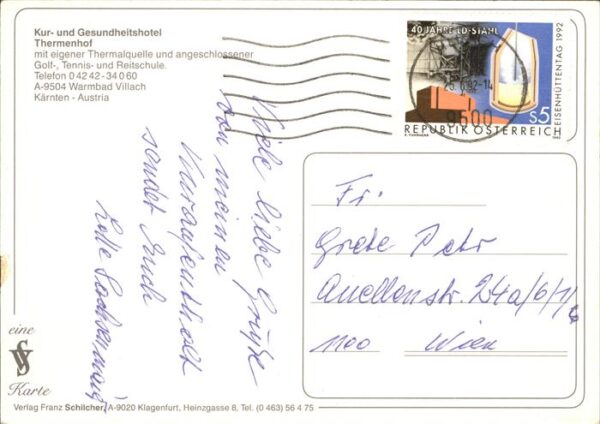 Kur- und Gesundheitshotel
Thermenhof
mit eigener Thermalquelle und angeschlossener
Golf-, Tennis- und Reitschule.
Telefon 0 42 42 - 34 0 60
A-9504 Warmbad Villach
Kärnten - Austria
40 JAHRE LD-STAHL
EISENHÜTTENTAG 1992
S5
REPUBLIK ÖSTERREICH
9500
Viele liebe Grüße
von meinem
Kuraufenthalt
sendet Euch
Lotte
Fr.
Grete Petr
Quellenstr. 24a/6/1/
1100 Wien
eine
Karte
Verlag Franz Schilcher, A-9020 Klagenfurt, Heinzgasse 8, Tel. (0 463) 56 4 75